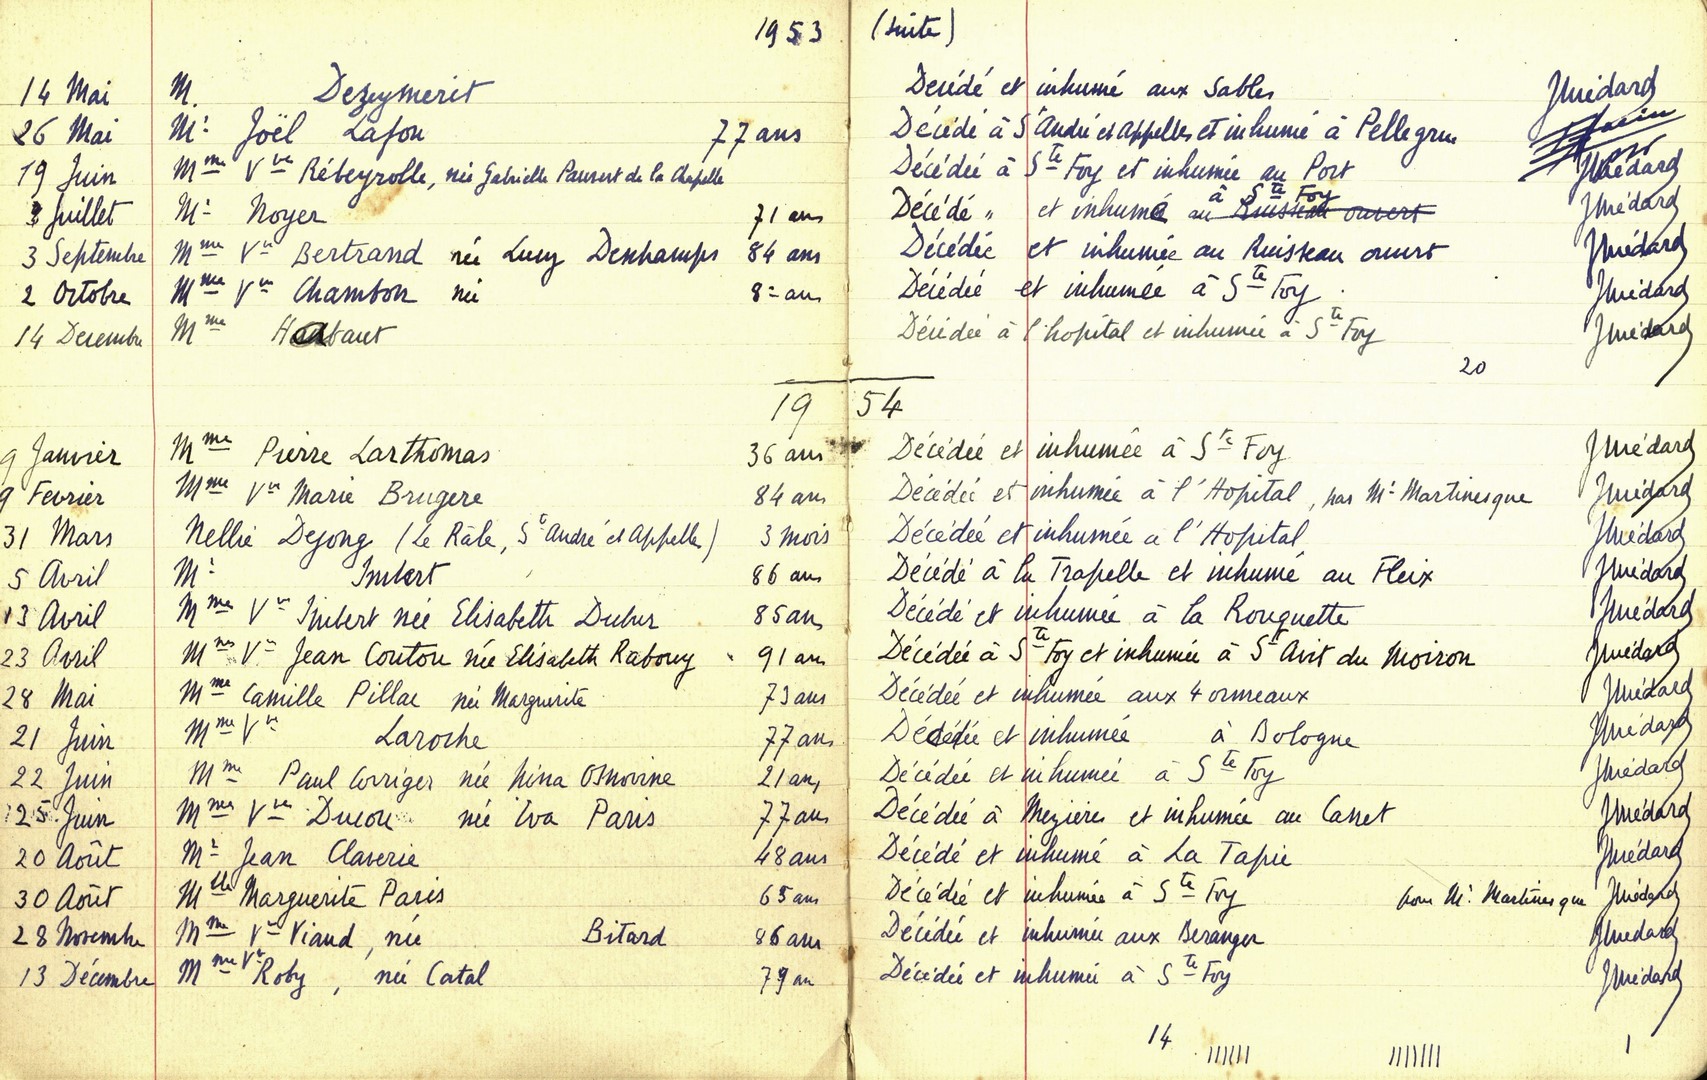 1953 (suite)
14 Mai M. Dezeymerit Décédé et inhumé aux Sables JMédard
26 Mai Mr Joël Lafon 77 ans Décédé à St André et Appelles et inhumé à Pellegrue
19 Juin Mme Vve Rébeyrolle, née Gabrielle de la Chapelle Décédée à Ste Foy et inhumée au Port JMédard
3 Juillet Mr Noyer 71 ans Décédé " et inhumé au à Ste Foy Ruisseau ouvert JMédard
3 Septembre Mme Vve Bertrand née Lucy Deschamps 84 ans Décédée et inhumée au Ruisseau ouvert JMédard
2 Octobre Mme Vve Chambon née 8- ans Décédée et inhumée à Ste Foy. JMédard
14 Decembre Mme Décédée à l'hopital et inhumée à Ste Foy JMédard
20
1954
9 Janvier Mme Pierre Larthomas 36 ans Décédée et inhumée à Ste Foy JMédard
9 Fevrier Mme Vve Marie Brugere 84 ans Décédée et inhumée à l'Hopital, par Mr Martinesque JMédard
31 Mars Nellie Dejong (Le Râle, St André et Appelles) 3 mois Décédée et inhumée a l'Hopital JMédard
5 Avril Mr Imbert 86 ans Décédé à la Trapelle et inhumé au Fleix JMédard
13 Avril Mme Vve Imbert née Elisabeth 85 ans Décédé et inhumée à la Rouquette JMédard
23 Avril Mme Vve Jean Coutou née Elisabeth Rabouy 91 ans Décédée à Ste Foy et inhumée à St Avit du Moiron JMédard
28 Mai Mme Camille Pillac née Marguerite 73 ans Décédée et inhumée aux 4 ormeaux JMédard
21 Juin Mme Vve Laroche 77 ans Décédée et inhumée à Bologne JMédard
22 Juin Mme Paul Corriger née Nina Osnovine 21 ans Décédée et inhumée à Ste Foy JMédard
25 Juin Mme Vve Ducou née Eva Paris 77 ans Décédée à Mezières et inhumée au Canet JMédard
20 Août Mr Jean Claverie 48 ans Décédé et inhumé à La Tapie JMédard
30 Août Mlle Marguerite Paris 65 ans Décédée et inhumée à Ste Foy pour Mr Martinesque JMédard
28 Novembre Mme Vve Viaud, née Bitard 86 ans Décédée et inhumée aux Beranger JMédard
13 Décembre Mme Vve Roby, née Catal 79 an Décédée et inhumée à Ste Foy JMédard
14 |||||| ||||||| 1